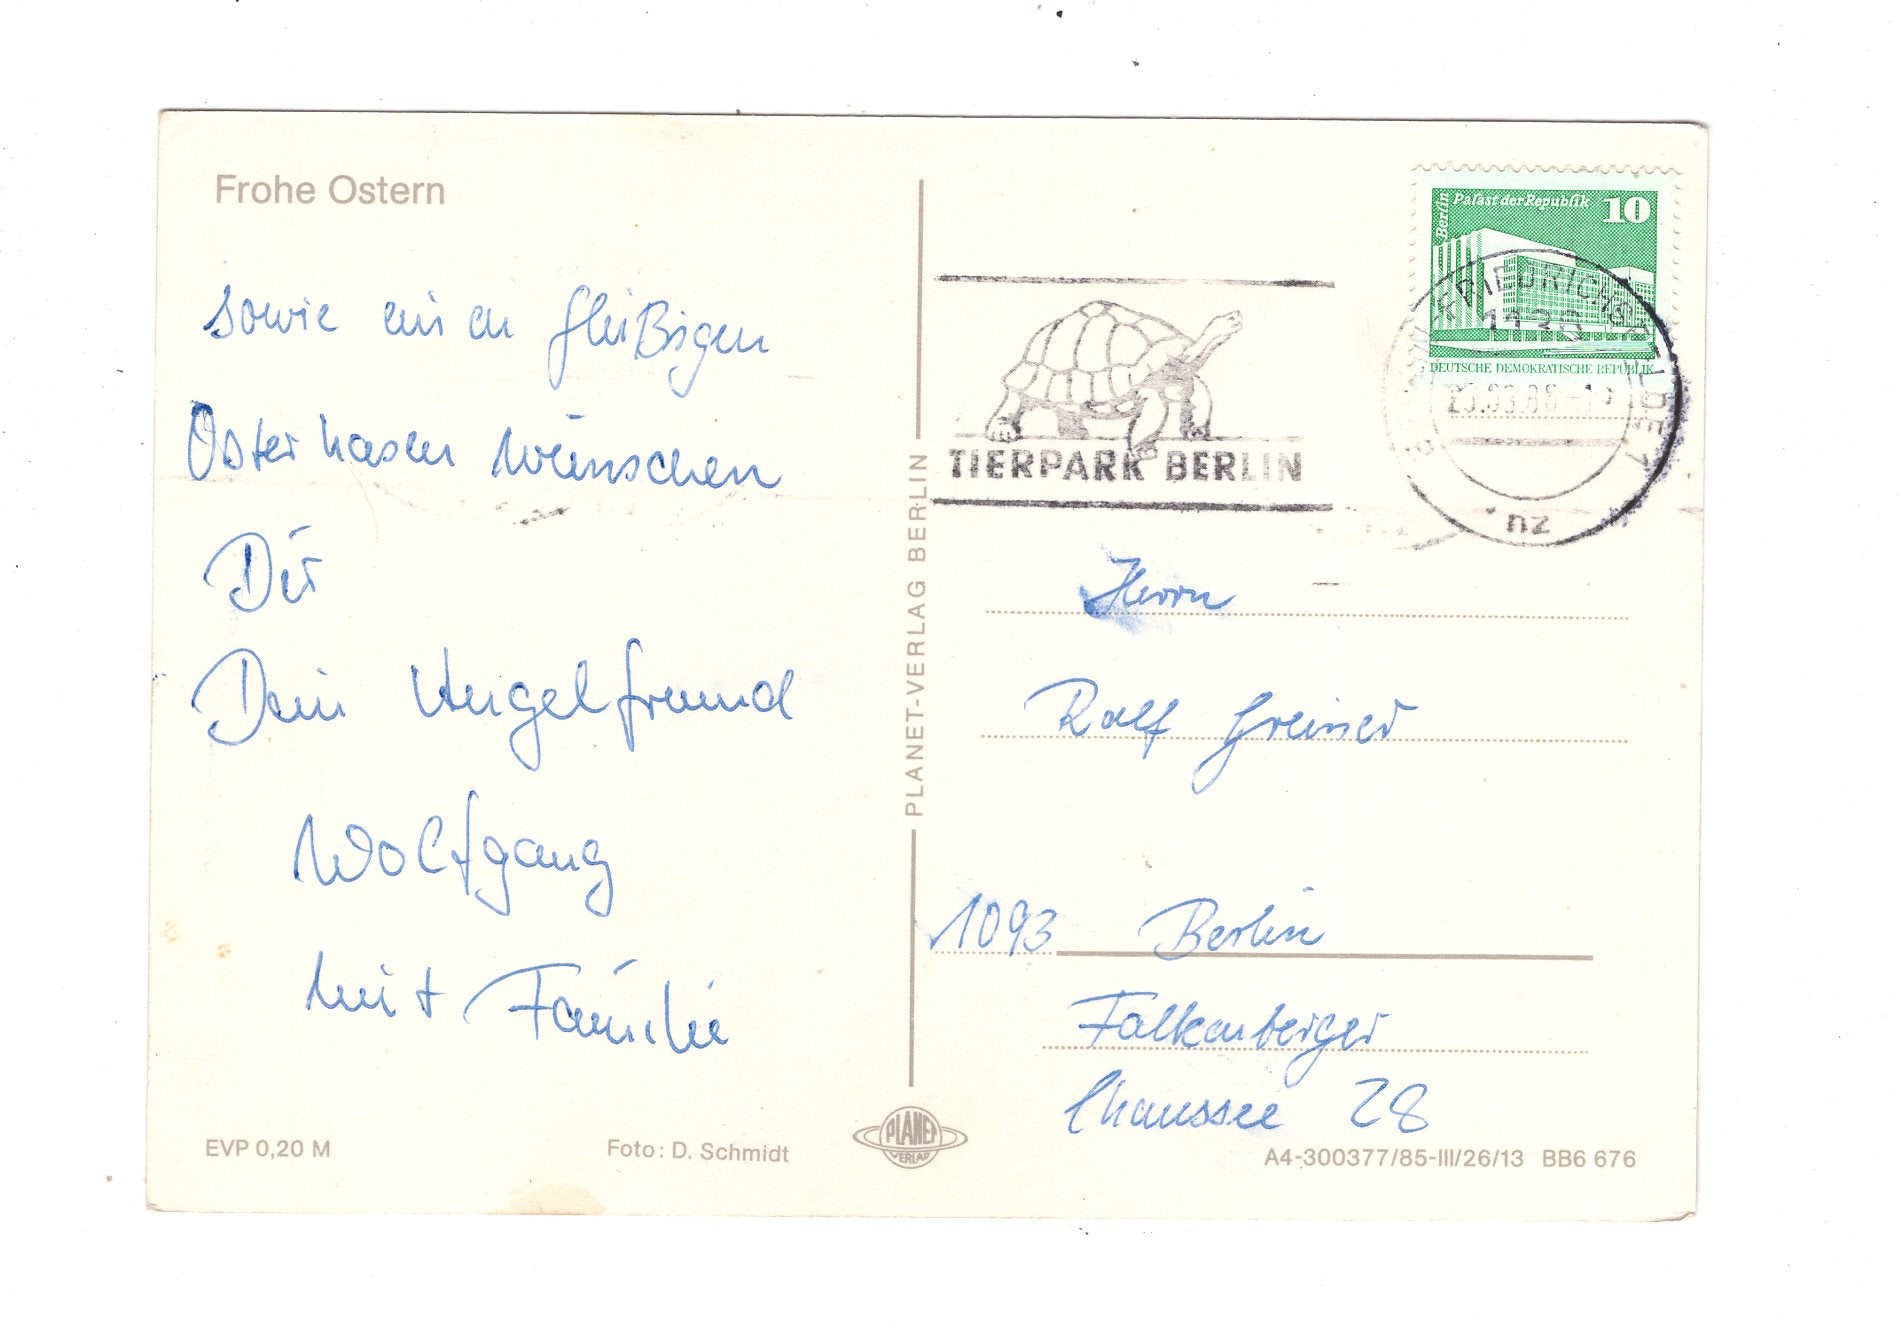 Frohe Ostern
sowie einen fleißigen
Osterhasen wünschen
Dir
Dein Angelfreund
Wolfgang
mit Familie
EVP 0,20 M
Foto: D. Schmidt
PLANET-VERLAG BERLIN
PLANET
VERLAG
Berlin
Palast der Republik
10
DEUTSCHE DEMOKRATISCHE REPUBLIK
FRIEDRICHSFELDE 1
1136
nz
TIERPARK BERLIN
Herrn
Ralf Greiner
1093 Berlin
Falkenberger
Chaussee 28
A4-300377/85-III/26/13 BB6 676